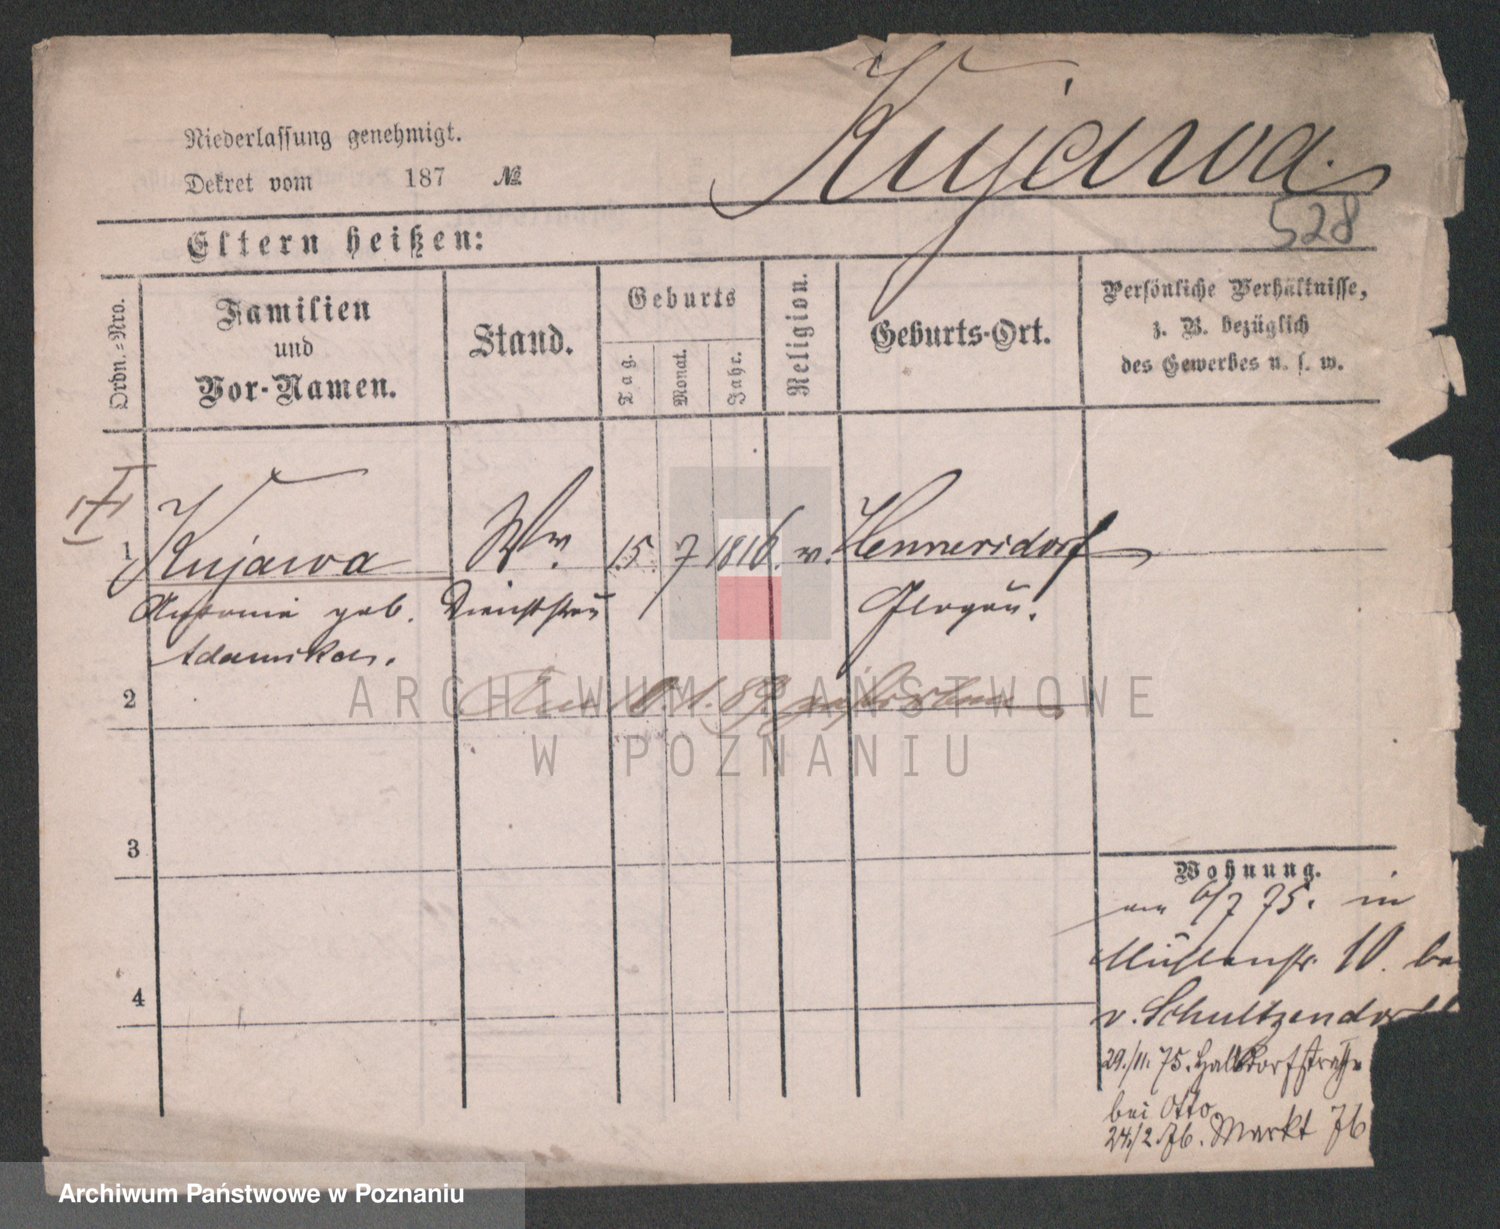 Kujawa.
Niederlassung genehmigt.
Dekret vom 187 №
528
Eltern heißen:
Ordn.-Nro.
Familien
und
Vor-Namen.
Stand.
Geburts
Tag.
Monat.
Jahr.
Religion.
Geburts-Ort.
Persönliche Verhältnisse,
z. B. bezüglich
des Gewerbes u. s. w.
1 Kujawa Ww. 15. 7 1816. Hennersdorf
Antonie geb. Dienstfrau Glogau.
2
Am 10.1.89. gestorben
3
4
Wohnung.
am 6/7 75. in
Mühlenstr. 10. be
v. Schultzendorff
29./11. 75. Halbdorfstraße
bei Otto
24./2.76. Markt 76
ARCHIWUM PAŃSTWOWE
W POZNANIU
Archiwum Państwowe w Poznaniu